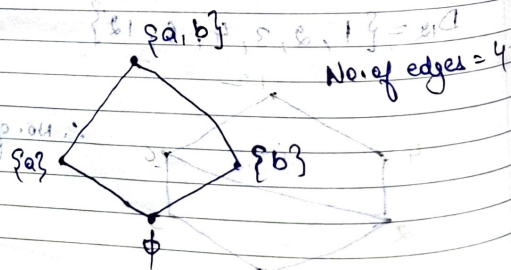 {a, b}
No. of edges = 4
{a} {b}
ϕ